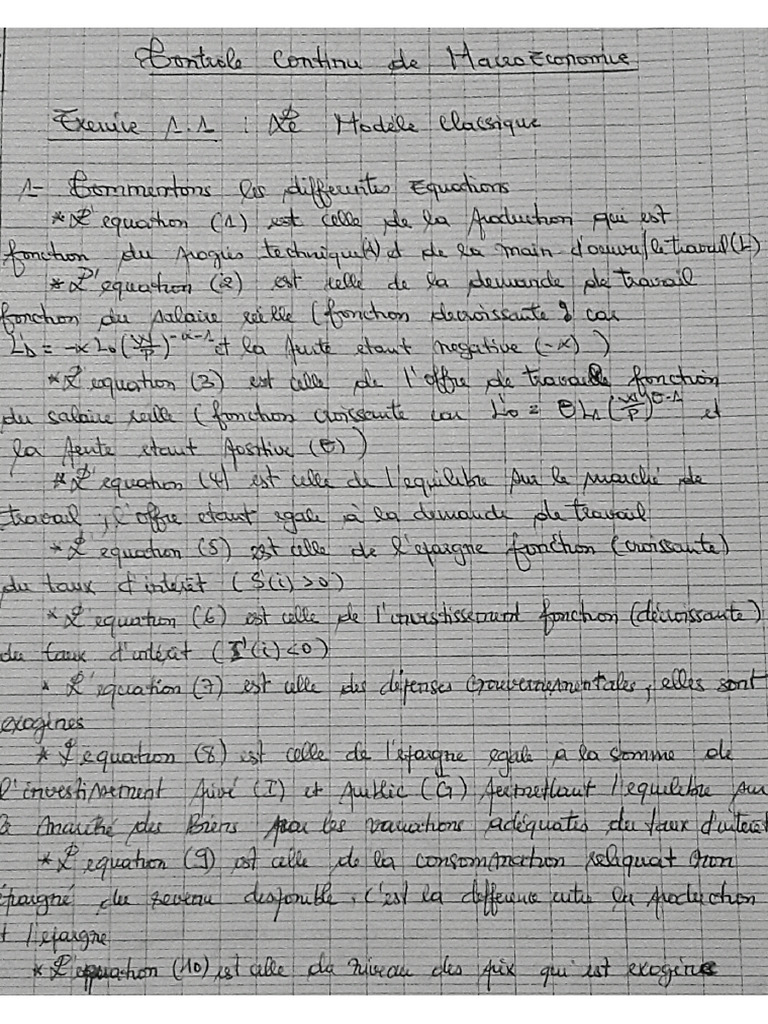 Contrôle continu de MacroEconomie
Exercice 1.1 : Le Modèle Classique
1- Commentons les differentes Equations
* L'equation (1) est celle de la Production qui est
fonction du progrès technique(A) et de la main d'oeuvre/le travail(L)
* L'equation (2) est celle de la demande de travail
fonction du salaire réelle (fonction decroissante car
L'D = -αL0(W/P)^-α-1 et la pente etant negative (-α) )
* L'equation (3) est celle de l'offre de travail fonction
du salaire reelle (fonction croissante car L'o = θL1(W/P)^θ-1 et
la pente etant positive (θ))
* L'equation (4) est celle de l'equilibre sur le marché de
travail, l'offre etant egale à la demande de travail
* L'equation (5) est celle de l'epargne fonction (croissante)
du taux d'interêt (S'(i) > 0)
* L'equation (6) est celle de l'investissement fonction (décroissante)
du taux d'intérêt (I'(i) < 0)
* L'equation (7) est celle des dépenses Gouvernementales, elles sont
exogènes
* L'equation (8) est celle de l'épargne egale à la somme de
l'investissement privé (I) et public (G) permettant l'equilibre sur
le marché des Biens par les variations adéquates du taux d'interêt
* L'equation (9) est celle de la consommation reliquat non
épargné du revenu disponible, c'est la difference entre la production
et l'epargne
* L'equation (10) est celle du niveau des prix qui est exogène